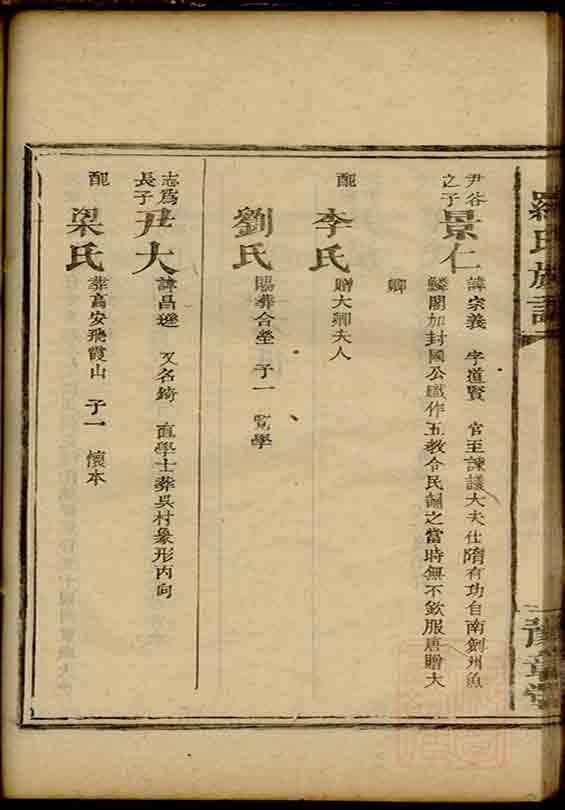 羅氏族譜
豫章堂
尹谷之子 景仁 諱宗義 字道賢 官至諫議大夫仕隋有功自南劍州魚
鱗閣加封國公 作五教令民誦之當時無不欽服唐贈大
卿
配 李氏 贈大卿夫人
劉氏 賜葬合塋 子一 寬學
志為長子 尹大 諱昌遜 又名錡 直學士葬吳村象形丙向
配 梁氏 葬高安飛霞山 子一 懷本